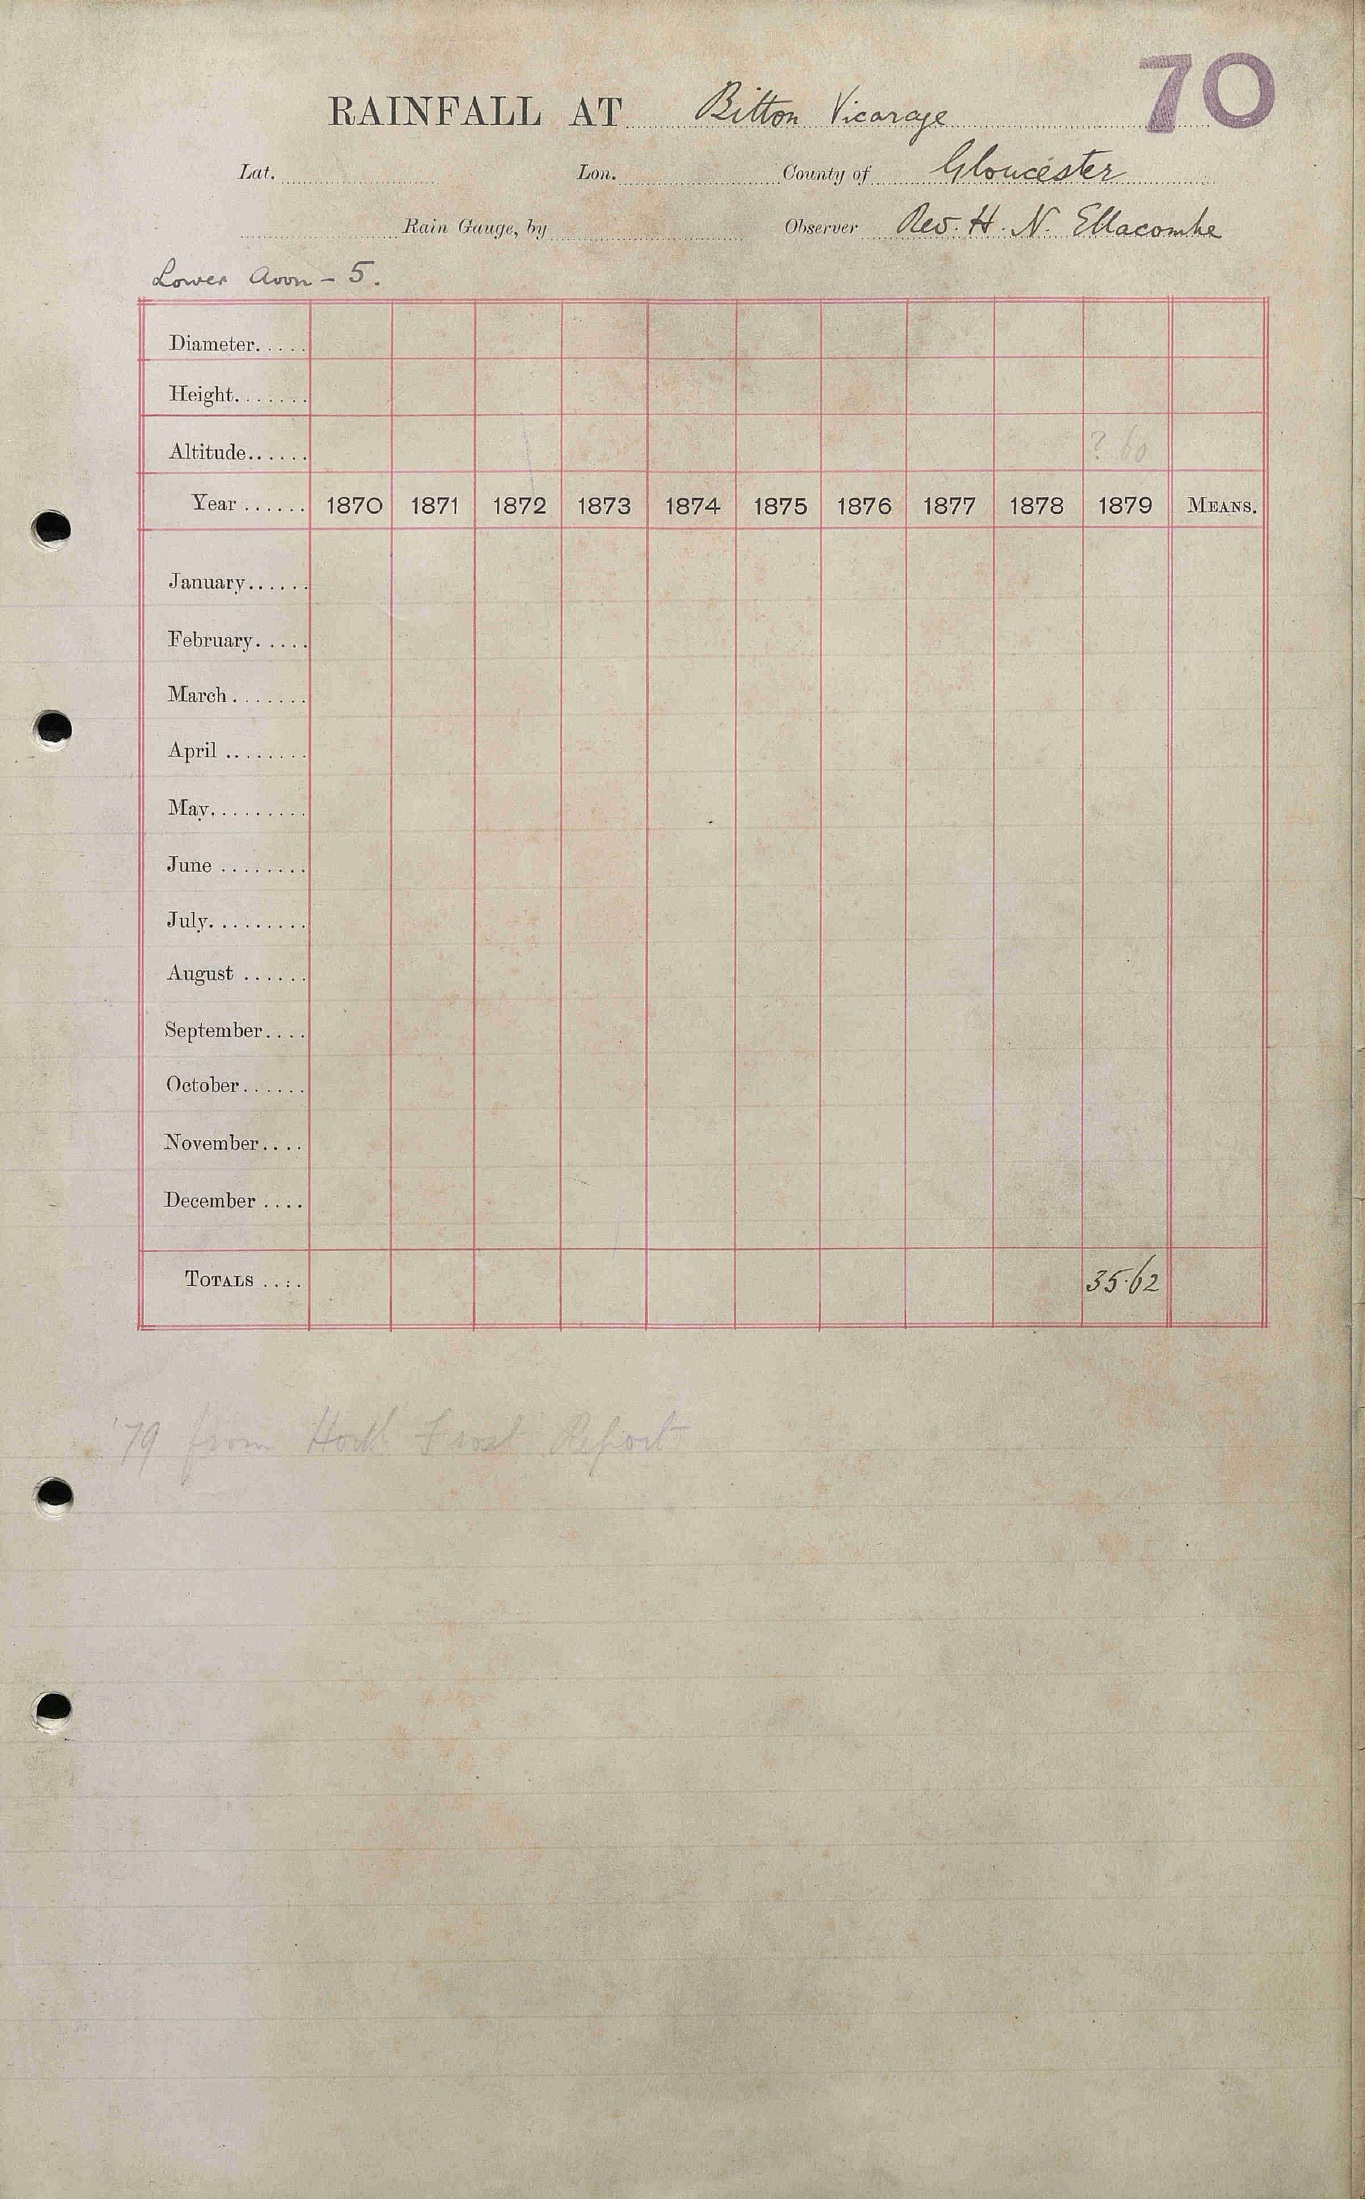 70
RAINFALL AT Bitton Vicarage
Lat. Lon. County of Gloucester
Rain Gauge, by Observer Rev. H. N. Ellacombe
Lower Avon - 5.
Diameter.....
Height.......
Altitude...... ? 60
Year ...... 1870 1871 1872 1873 1874 1875 1876 1877 1878 1879 MEANS.
January......
February.....
March.......
April ........
May.........
June ........
July.........
August ......
September....
October......
November....
December ....
TOTALS .... 35.62
'79 from Hortl Frost Report